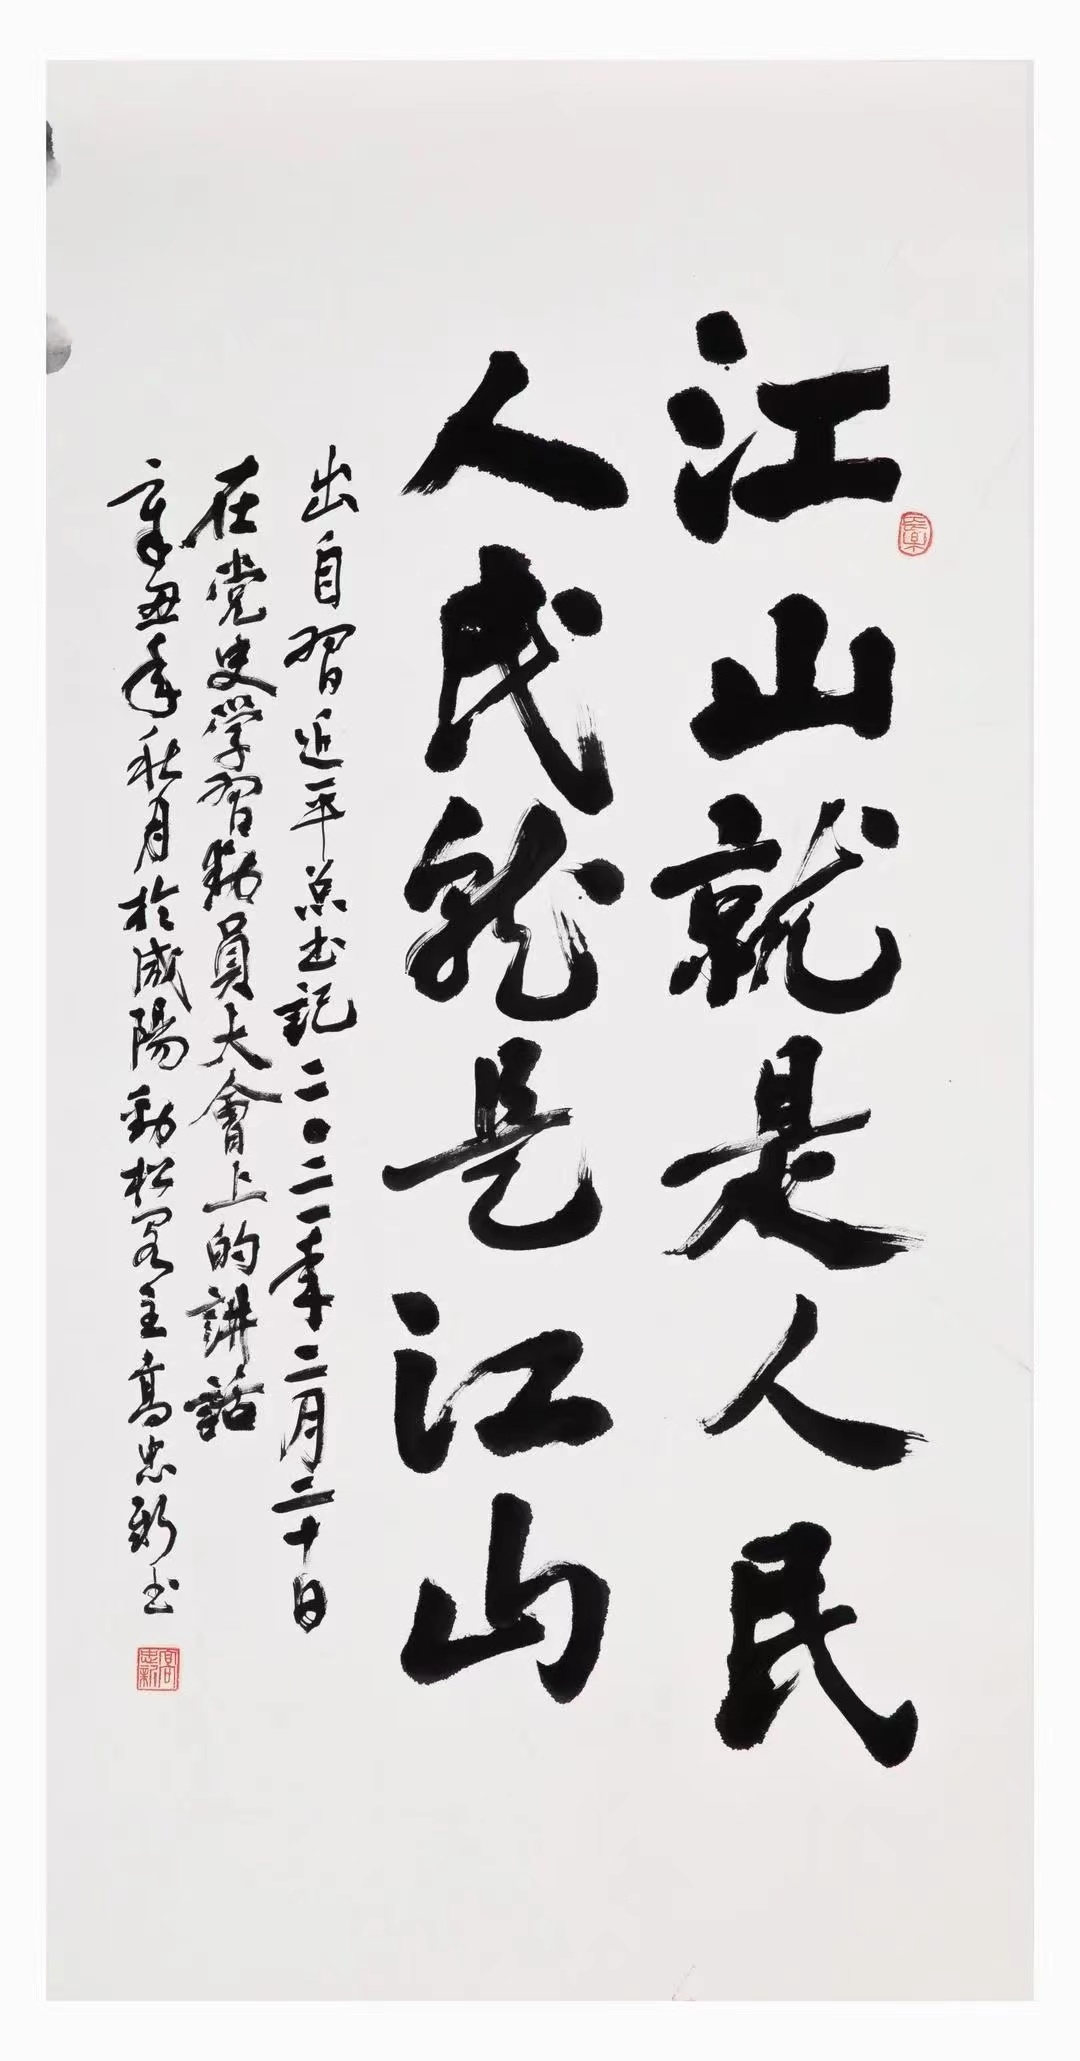 江山就是人民
人民就是江山
出自習近平总书記二〇二一年二月二十日
在党史学習動員大會上的講話
辛丑年秋月於咸陽勁松閣主高忠新书
高忠新